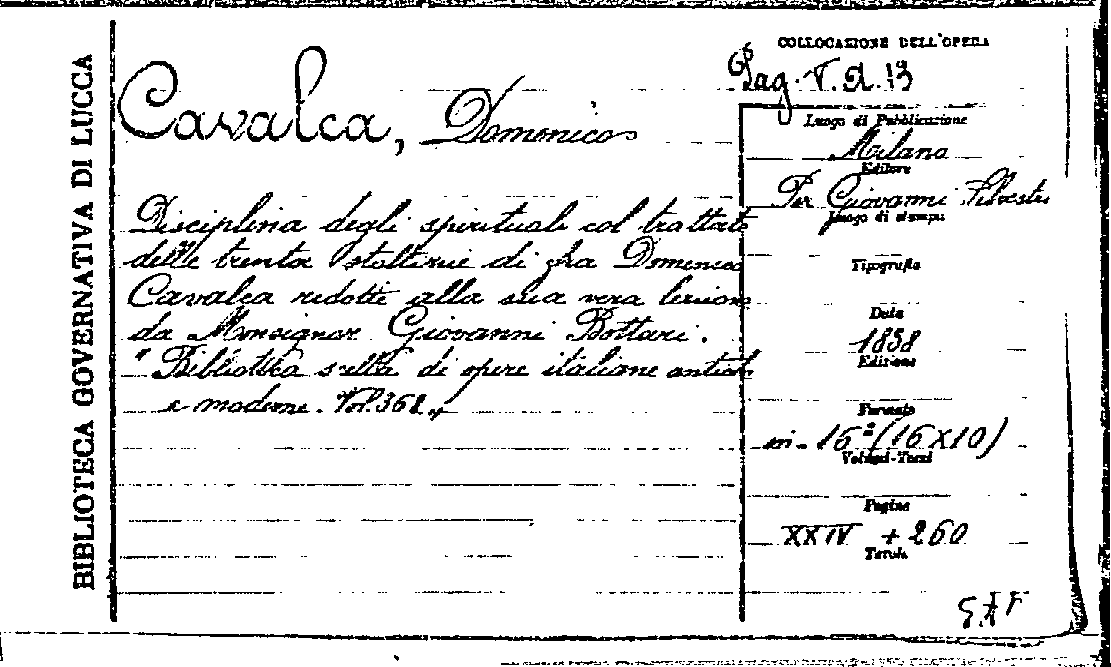 BIBLIOTECA GOVERNATIVA DI LUCCA
Cavalca, Domenico
Disciplina degli spirituali col trattato
delle trenta stoltizie di fra Domenico
Cavalca ridotti alla sua vera lezione
da Monsignor Giovanni Bottari.
"Biblioteca scelta di opere italiane antiche
e moderne. Vol. 368"
COLLOCAZIONE DELL'OPERA
Pag. V. A. 13
Luogo di Pubblicazione
Milano
Editore
Per Giovanni Silvestri
Luogo di stampa
Tipografia
Data
1838
Edizione
Formato
in-16º (16x10)
Volumi-Tomi
Pagine
XXIV + 260
Tavole